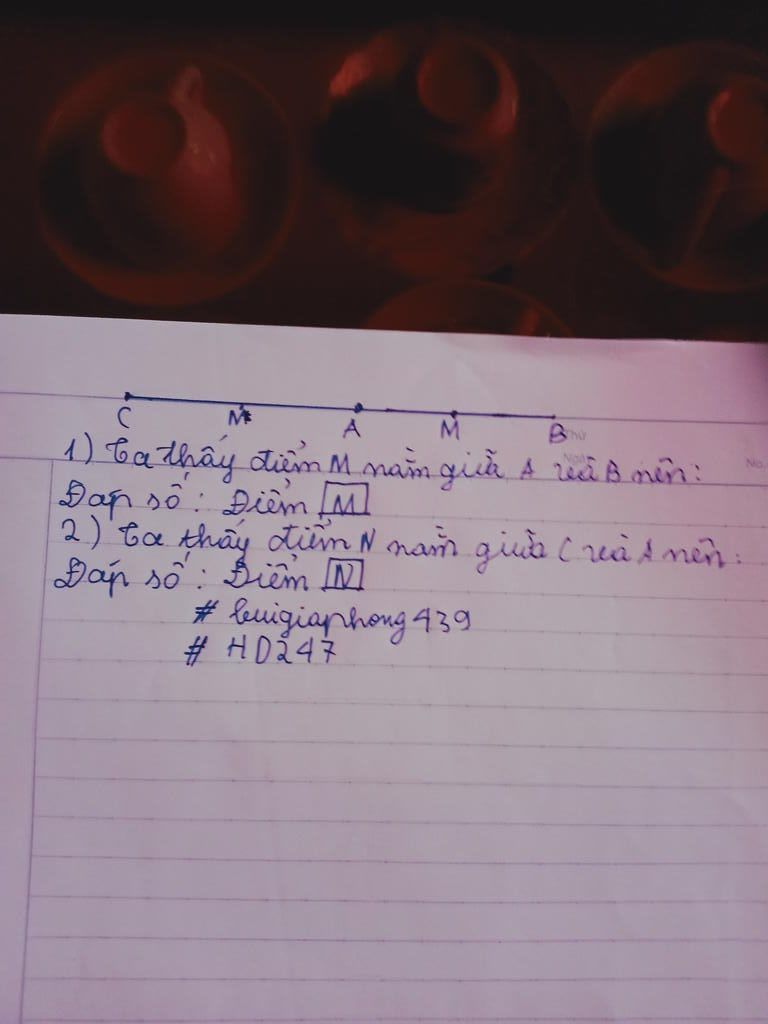 C M A M B
Thứ
1) Ta thấy điểm M nằm giữa A và B nên:
No.
Đáp số: Điểm M
2) Ta thấy điểm N nằm giữa C và A nên:
Đáp số: Điểm N
# buigiaphong439
# HD247